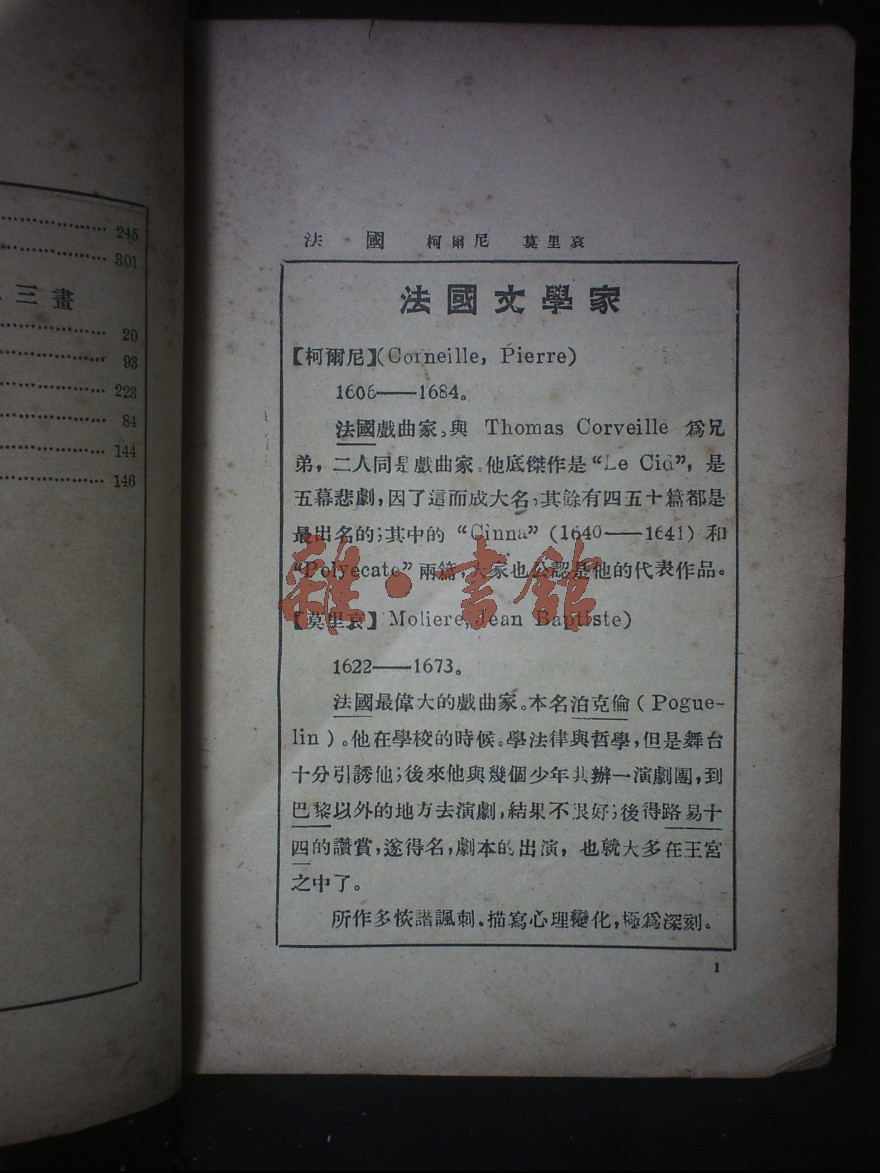 245
301
三畫
20
93
223
84
144
146
法 國 柯爾尼 莫里哀
法國文學家
【柯爾尼】(Corneille, Pierre)
1606——1684。
法國戲曲家。與 Thomas Corveille 爲兄
弟，二人同是戲曲家。他底傑作是“Le Cid”，是
五幕悲劇，因了這而成大名；其餘有四五十篇都是
最出名的；其中的 “Cinna” (1640——1641) 和
“Polyecate” 兩篇，大家也公認是他的代表作品。
雜·書館
【莫里哀】 Moliere, Jean Baptiste)
1622——1673。
法國最偉大的戲曲家。本名泊克倫 ( Pogue-
lin )。他在學校的時候。學法律與哲學，但是舞台
十分引誘他；後來他與幾個少年共辦一演劇團，到
巴黎以外的地方去演劇，結果不很好；後得路易十
四的讚賞，遂得名，劇本的出演， 也就大多在王宮
之中了。
所作多恢諧諷刺、描寫心理變化，極爲深刻。
1